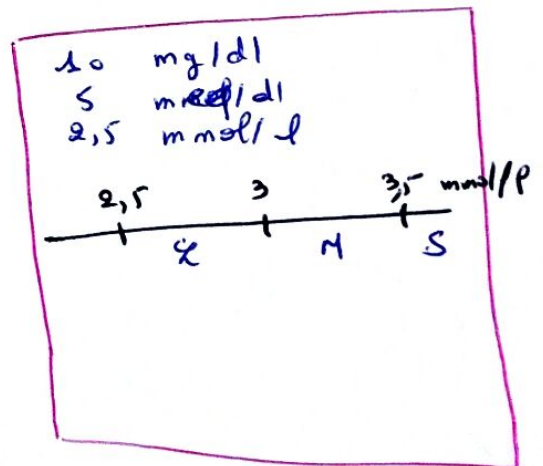 10 mg/dl
5 meq/dl
2,5 mmol/l
2,5 3 3,5 mmol/l
L M S